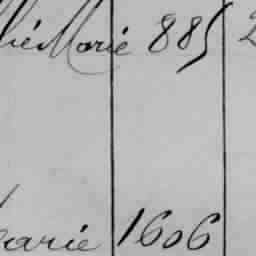 Marie 885
arie 1606